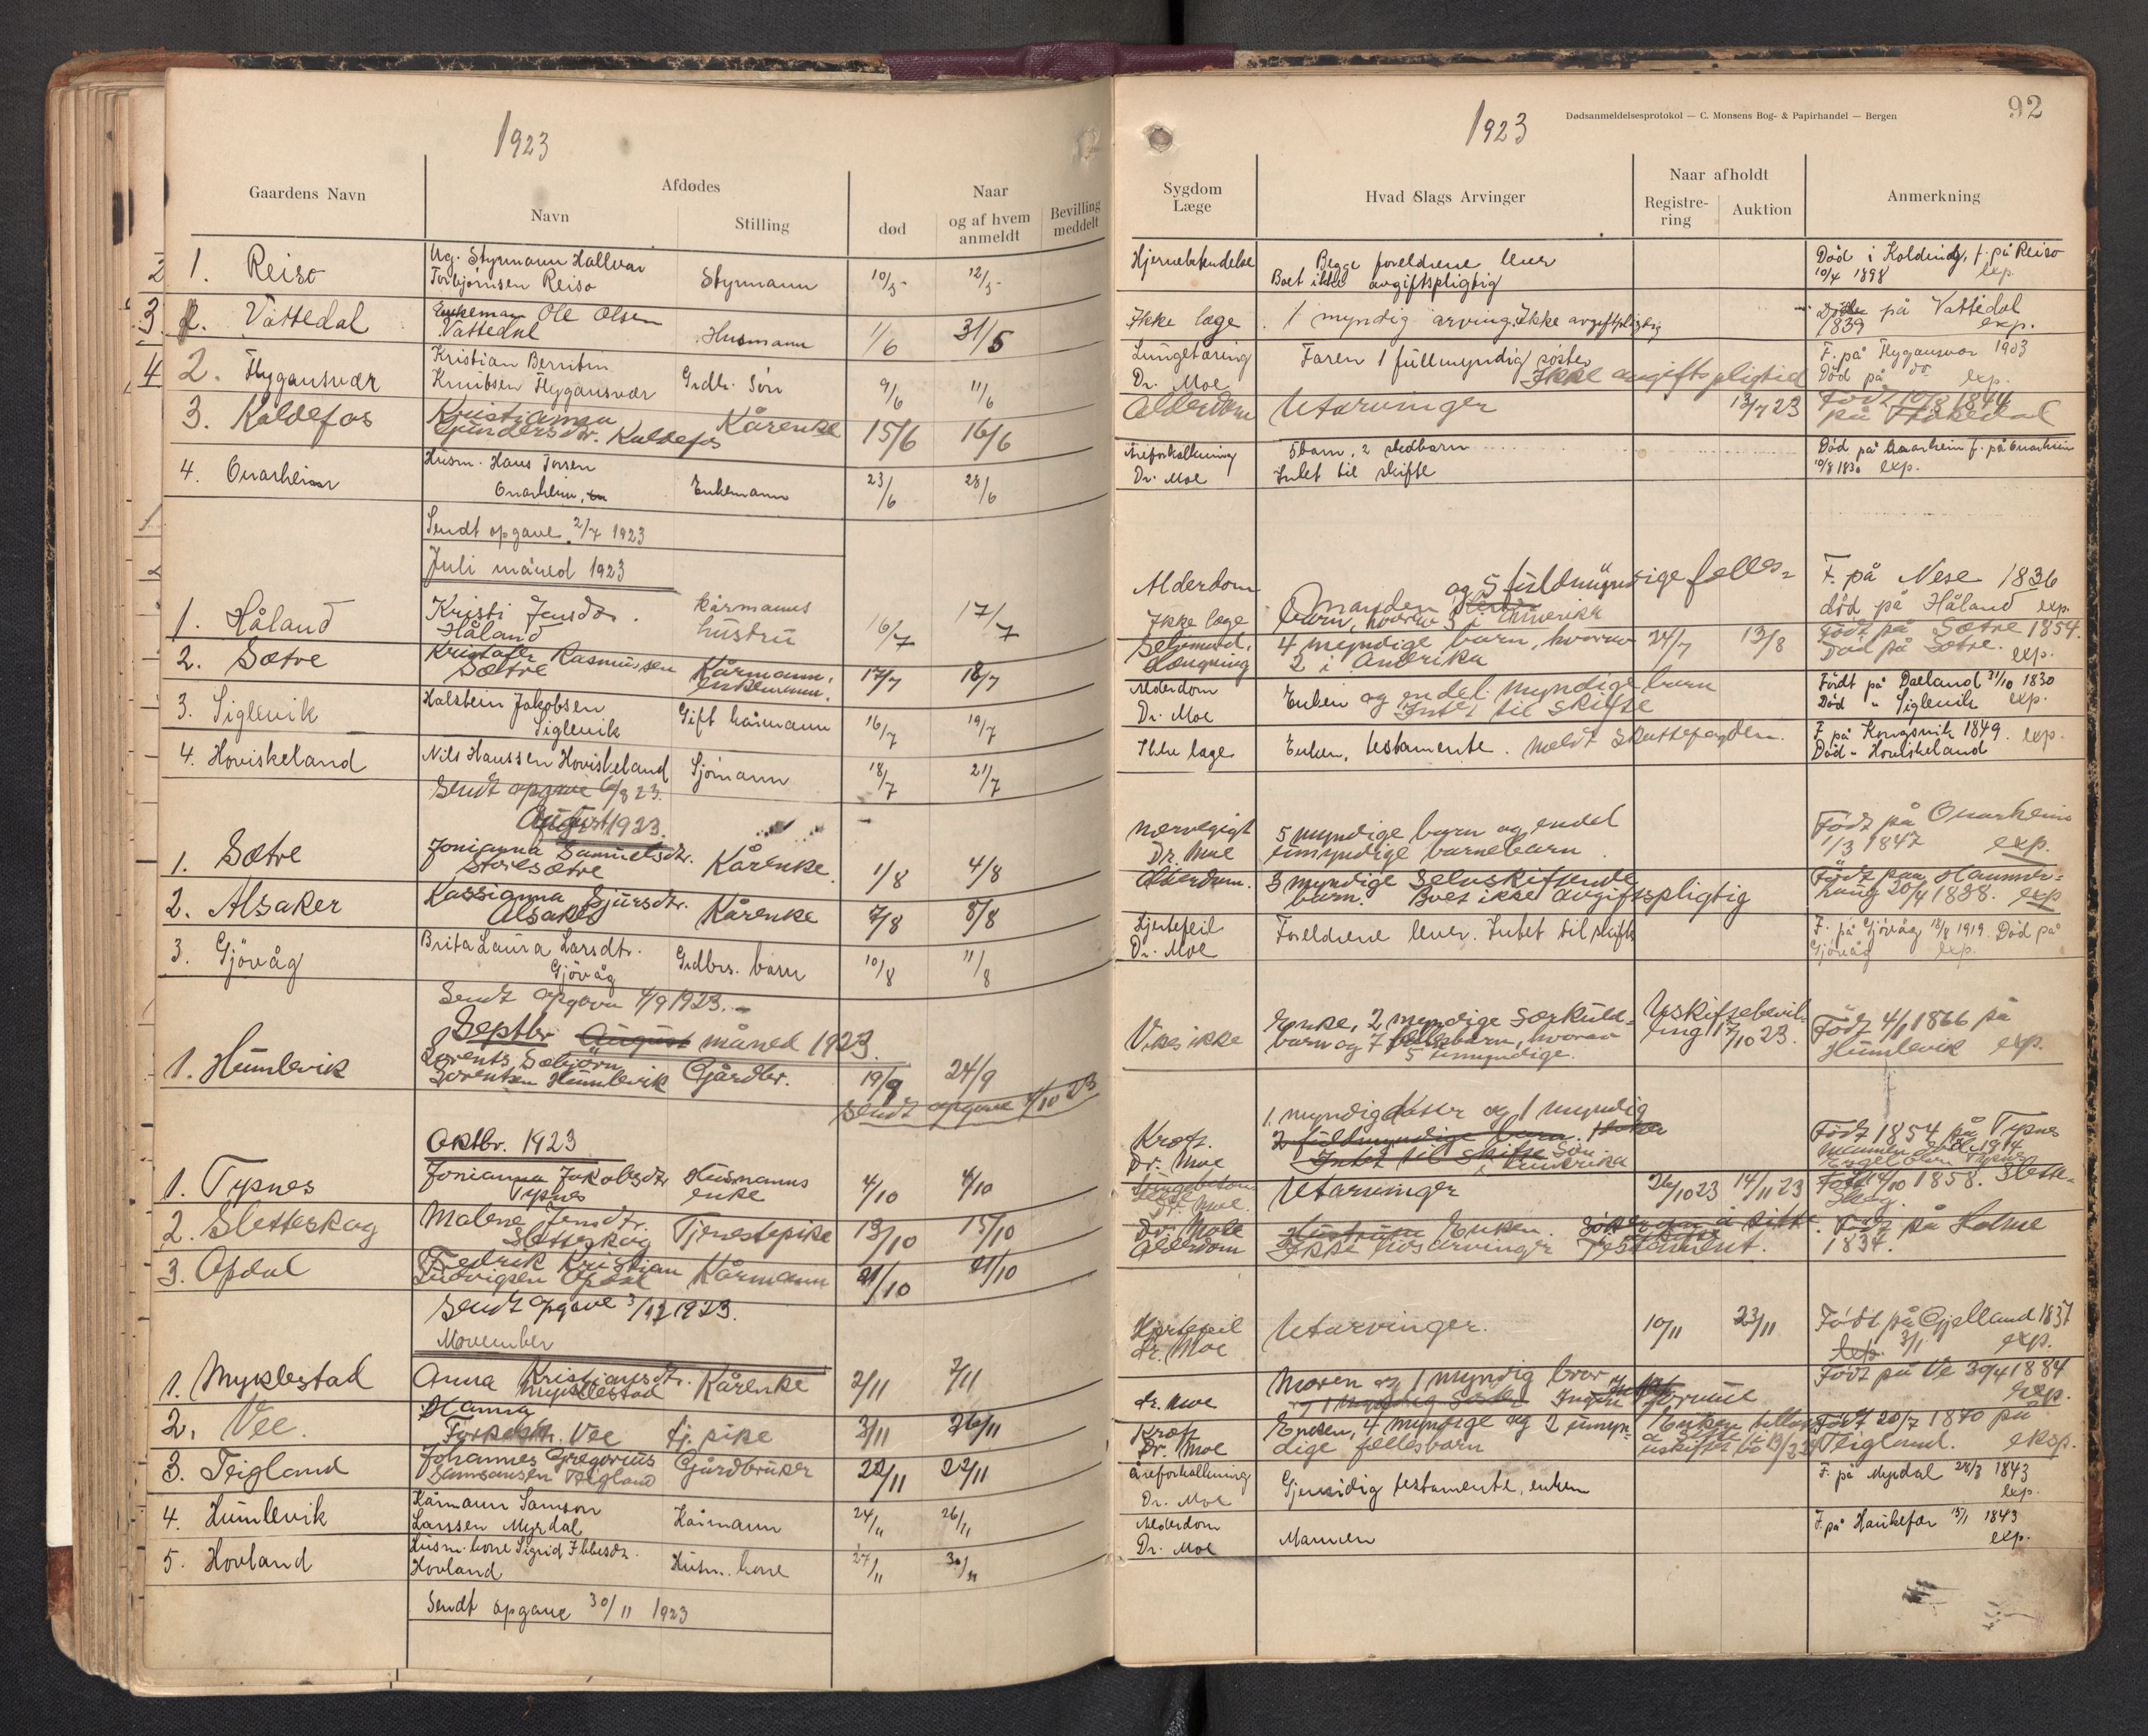 1923
Gaardens Navn
Afdødes
Navn
Stilling
Naar
død
og af hvem anmeldt
Bevilling meddelt
2 1. Reiso
Ug. Styrmann Hallvar
Torbjørnsen Reiso
Styrmann
10/5 12/5
3 Vattedal
Enkeman Ole Olsen
Vattedal
Husmann
1/6 31/5
4 2. Flygansvær
Kristian Berntin
Knutsen Flygansvær
Grdbr. Søn
9/6 11/6
3. Kaldefos
Kristianna
Gundersdtr. Kaldefos
Kårenke
15/6 16/6
4. Onarheim
Husm. Hans
Onarheim,
Enkemann
23/6 28/6
Sendt opgave 2/7 1923
Juli måned 1923
1. Håland
Kristi Jensdtr.
Håland
kårmanns
hustru
16/7 17/7
2. Sætre
Kristofer Rasmussen
Sætre
Kårmann,
enkemann.
17/7 18/7
3. Siglevik
Halstein Jakobsen
Siglevik
Gift kårmann
16/7 19/7
4. Hoviskeland
Nils Hanssen Hoviskeland
Sjømann
18/7 21/7
Sendt opgave 6/8 23.
August 1923.
1. Sætre
Jonianna Samuelsdtr.
Storesætre
Kårenke.
1/8 4/8
2. Alsaker
Kassianna Sjursdtr.
Alsaker
Kårenke
7/8 8/8
3. Gjövåg
Brita Laura Larsdtr.
Gjövåg
Grdbrs. barn
10/8 11/8
Sendt opgave 4/9 1923.
Septbr. August måned 1923.
1. Humlevik
Lorents Sæbjörn
Lorentsen Humlevik
Gårdbr.
19/9 24/9
Sendt opgave 4/10 23
Oktbr. 1923
1. Typnes
Jonianna Jakobsdtr
Typnes
Husmanns
enke
4/10 4/10
2. Sletteskog
Malene Jensdtr.
Sletteskog
Tjenestepike
13/10 15/10
3. Opdal
Fredrik Kristian
Ludvigsen Opdal
Kårmann
21/10 21/10
Sendt opgave 3/12 1923.
November
1. Myklestad
Anna Kristiansdtr.
Myklestad
Kårenke
2/11 7/11
2. Vee.
Hanna
Torkelsdtr. Vee
tj. pike
3/11 26/11
3. Teigland
Johannes Gregorius
Samsonsen Teigland
Gårdbruker
22/11 22/11
4. Humlevik
Kårmann Samson
Larssen Myrdal
Kårmann
24/11 26/11
5. Hovland
Husm. kone Sigrid
Hovland
Husm. kone
27/11 30/11
Sendt opgave 30/11 1923
1923
Dødsanmeldelsesprotokol — C. Monsens Bog- & Papirhandel — Bergen
92
Sygdom Læge
Hvad Slags Arvinger
Naar afholdt
Registrering
Auktion
Anmerkning
Hjernebetendelse
Begge foreldrene lever
Boet ikke avgiftspligtig
Død i Kolding, f. på Reiso
10/4 1898 exp
Ikke læge
1 myndig arving. Ikke avgiftspligtig
på Vattedal
1839 exp.
Lungetæring
Dr. Moe
Faren 1 fullmyndig søster
Ikke avgiftspligtig
F. på Flygansvær 1903
Død på do. exp.
Alderdom
Utarvinger
13/7 23
Født 10/8 1844
på
Åreforkalkning
Dr. Moe
5 barn, 2 stedbarn
Intet til skifte
Død på Onarheim f. på Onarheim
10/8 1830 exp.
Alderdom
Ikke læge
Manden og 5 fuldmyndige felles-
barn, hvorav 3 i Amerika
F. på Nese 1836
død på Håland exp.
Selvmord,
Hængning
4 myndige barn, hvorav
2 i Amerika
24/7 13/8
Født på Sætre 1854.
Død på Sætre. exp.
Alderdom
Dr. Moe
Enken og en del myndige barn
Intet til skifte
Født på Dæland 31/10 1830
Død " Siglevik exp.
Ikke læge
Enken, testamente. meldt
F. på Kongsvik 1849. exp.
Død - Hoviskeland
Dr. Moe
5 myndige barn og endel
umyndige barnebarn
Født på Onarheim
1/3 1847 exp.
Alderdom.
3 myndige selvskiftende
barn. Boet ikke avgiftspligtig
Født paa Hammer-
haug 20/4 1838. exp
Hjertefeil
Dr. Moe
Foreldrene lever. Intet til skifte
F. på Gjövåg 18/8 1919. Död på
Gjövåg exp.
Vites ikke
Enke, 2 myndige særkuld-
barn og 7 fellesbarn, hvorav
5 umyndige.
Uskiftebevil-
ling 17/10 23.
Født 4/1 1866 på
Humlevik exp.
Kræft.
Dr. Moe
1 myndig datter og 1 myndig
2 fuldmyndige barn.
Intet til skifte Sön
i Amerika
Født 1854 på Typnes
Dr. Moe.
Utarvinger
26/10 23 14/11 23
Født 14/10 1858. Slette-
skog.
Dr. Moe
Alderdom
Hustruen Enken.
Ikke livsarvinger Testament.
Født på Holme
1834.
Hjertefeil
Dr. Moe
Utarvinger.
10/11 23/11
Født på Gjelland 1837
3/1 exp.
Dr. Moe
Moren og 1 myndig bror
Ingen formue
Født på Ve 30/4 1884
exp.
Kræft
Dr. Moe
Enken, 4 myndige og 2 umyn-
dige fellesbarn
Født 20/7 1870 på
Teigland. eksp.
Åreforkalkning
Dr. Moe
Gjensidig testamente, enken
F. på Myrdal 28/3 1843
exp.
Alderdom
Dr. Moe
Mannen
F. på Haukefær 15/1 1843
exp.